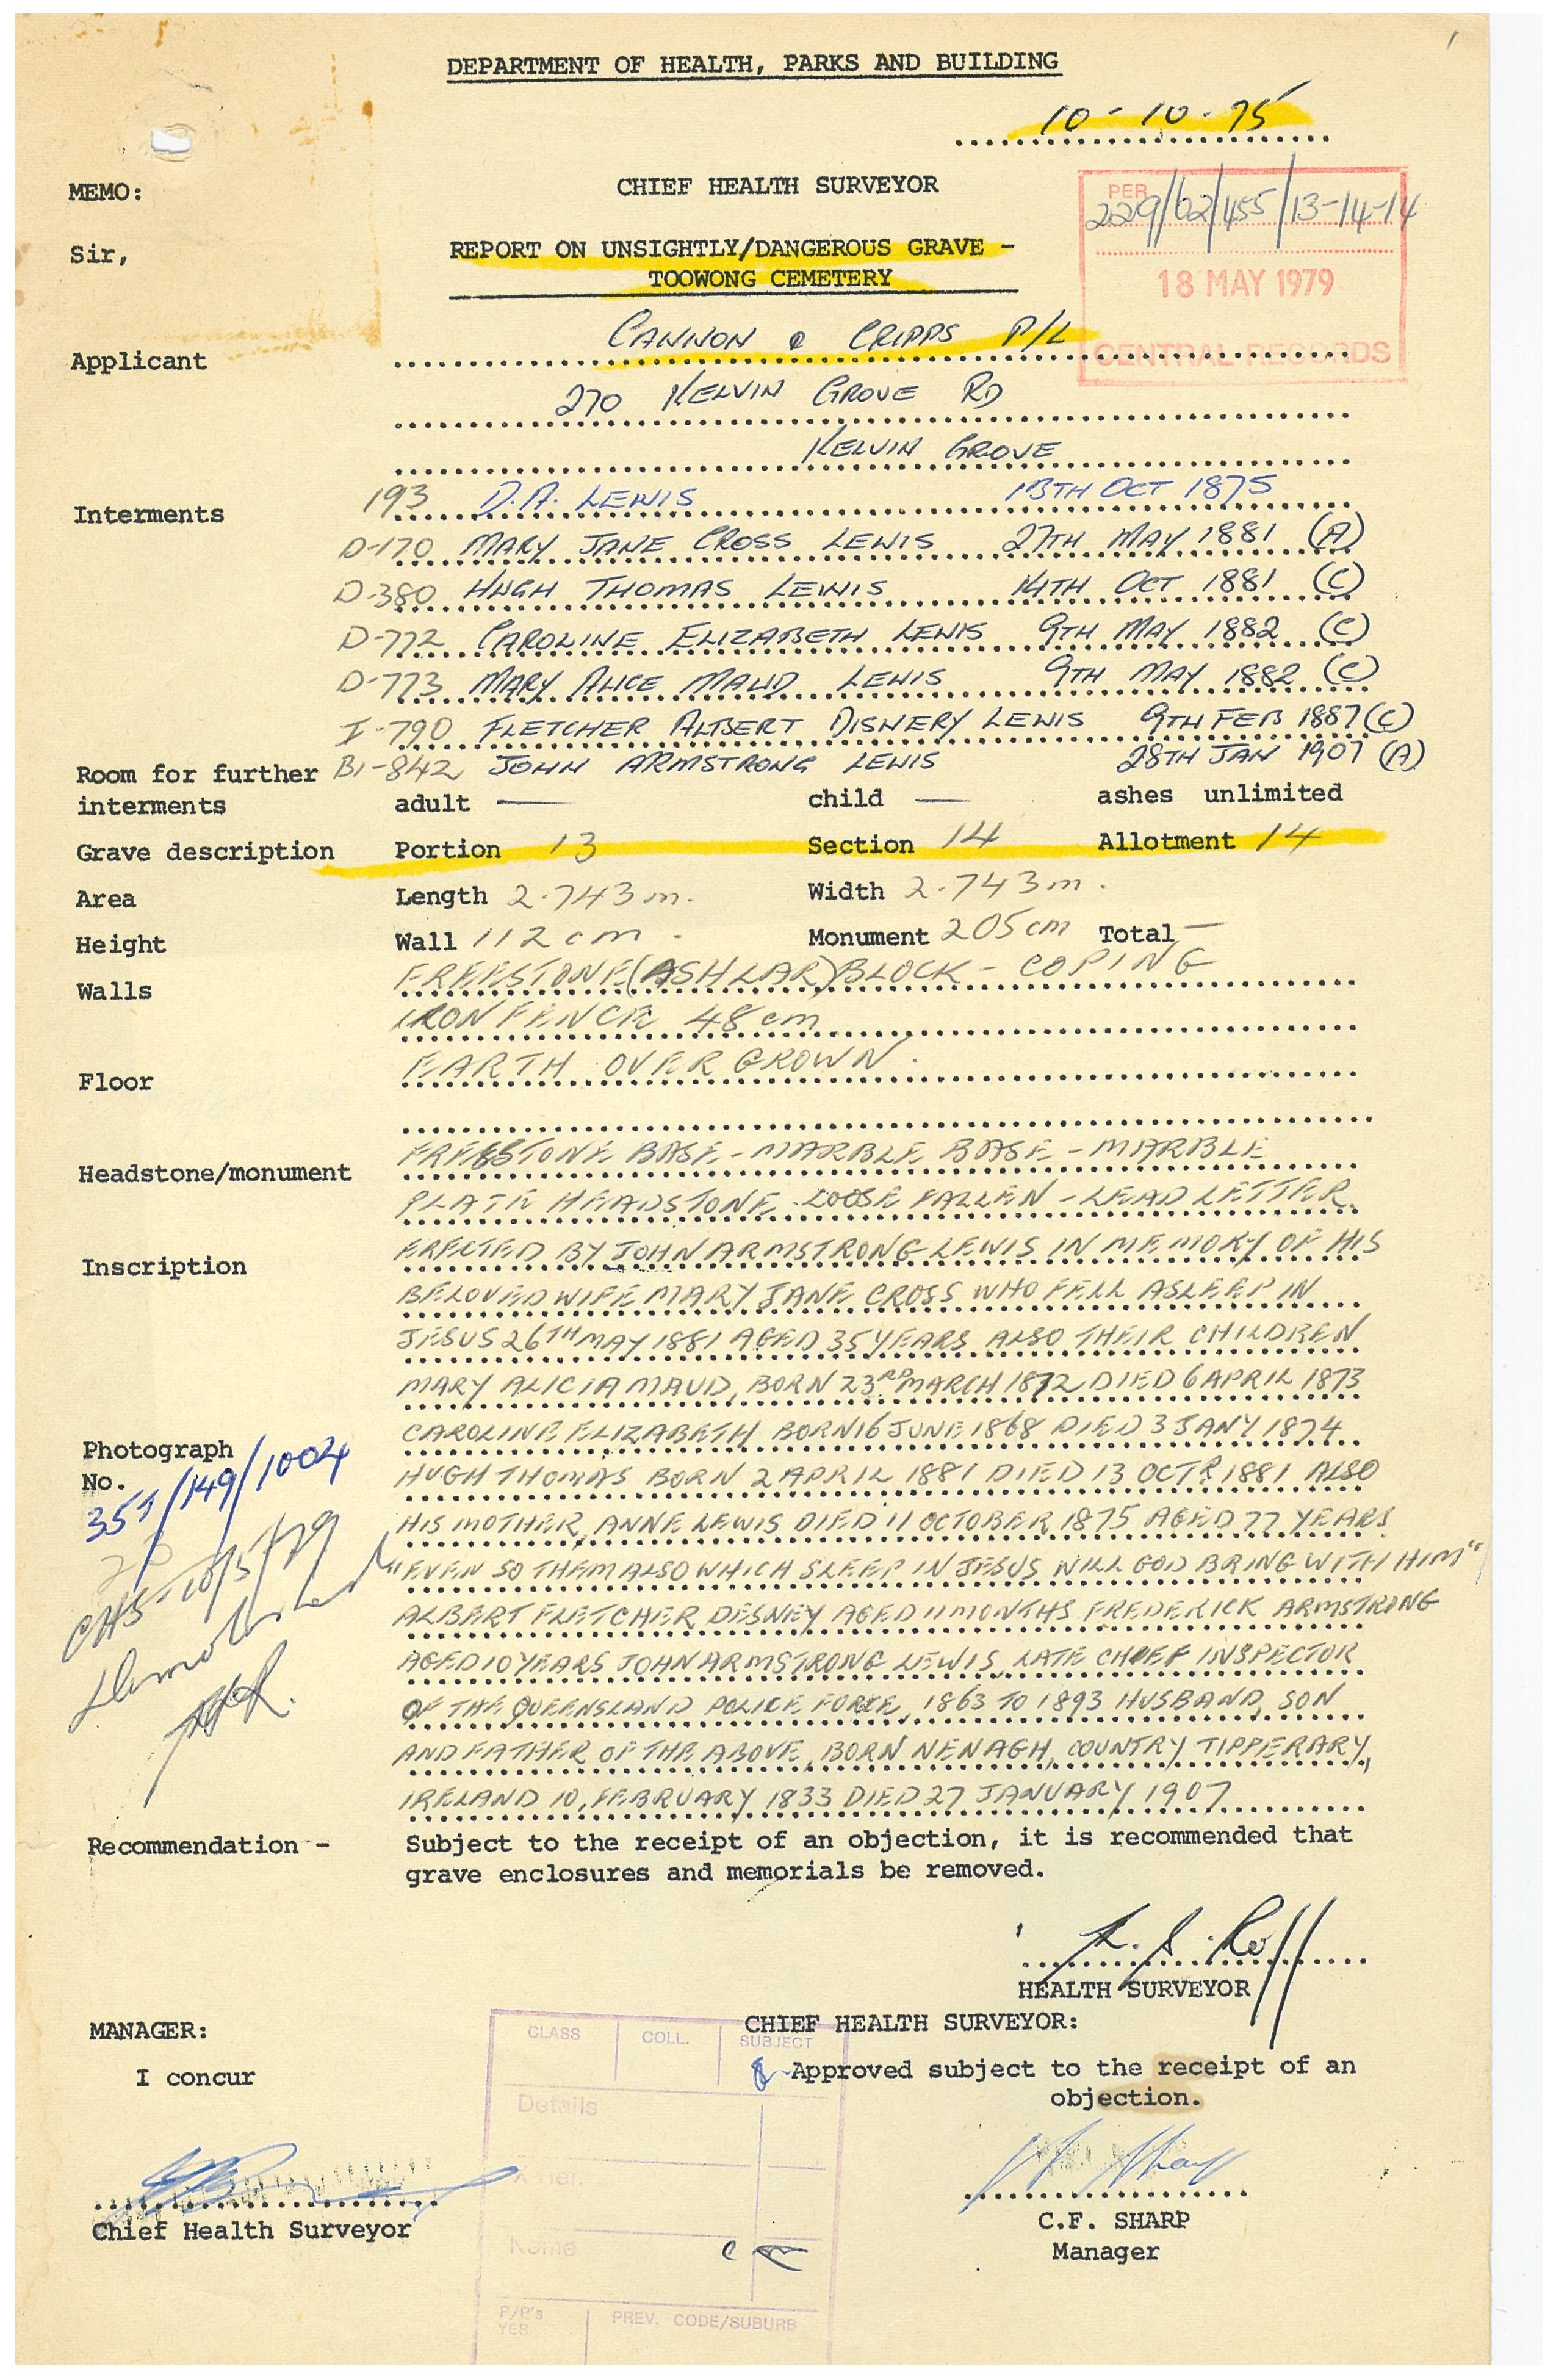 DEPARTMENT OF HEALTH, PARKS AND BUILDING
10-10-75
MEMO:
CHIEF HEALTH SURVEYOR
PER
229/62/455/13-14-14
18 MAY 1979
CENTRAL RECORDS
Sir,
REPORT ON UNSIGHTLY/DANGEROUS GRAVE -
TOOWONG CEMETERY
Applicant CANNON & CRIPPS P/L
270 KELVIN GROVE RD
KELVIN GROVE
Interments 193 D.A. LEWIS 13TH OCT 1875
D-170 MARY JANE CROSS LEWIS 27TH MAY 1881 (A)
D-380 HUGH THOMAS LEWIS 14TH OCT 1881 (C)
D-772 CAROLINE ELIZABETH LEWIS 9TH MAY 1882 (C)
D-773 MARY ALICE MAUD LEWIS 9TH MAY 1882 (C)
I-790 FLETCHER ALBERT DISNERY LEWIS 9TH FEB 1887 (C)
B1-842 JOHN ARMSTRONG LEWIS 28TH JAN 1907 (A)
Room for further
interments adult — child — ashes unlimited
Grave description Portion 13 Section 14 Allotment 14
Area Length 2.743m. Width 2.743m.
Height Wall 112cm. Monument 205cm Total —
Walls FREESTONE (ASHLAR) BLOCK - COPING
IRON FENCE 48cm
Floor EARTH OVERGROWN.
Headstone/monument FREESTONE BASE - MARBLE BASE - MARBLE
PLATE HEADSTONE - LOOSE FALLEN - LEAD LETTER
Inscription ERECTED BY JOHN ARMSTRONG LEWIS IN MEMORY OF HIS
BELOVED WIFE MARY JANE CROSS WHO FELL ASLEEP IN
JESUS 26TH MAY 1881 AGED 35 YEARS ALSO THEIR CHILDREN
MARY ALICIA MAUD, BORN 23RD MARCH 1872 DIED 6 APRIL 1873
CAROLINE ELIZABETH BORN 16 JUNE 1868 DIED 3 JANY 1874
HUGH THOMAS BORN 2 APRIL 1881 DIED 13 OCTR 1881 ALSO
HIS MOTHER, ANNE LEWIS DIED 11 OCTOBER 1875 AGED 77 YEARS
"EVEN SO THEM ALSO WHICH SLEEP IN JESUS WILL GOD BRING WITH HIM"
ALBERT FLETCHER DESNEY AGED 11 MONTHS FREDERICK ARMSTRONG
AGED 10 YEARS JOHN ARMSTRONG LEWIS, LATE CHIEF INSPECTOR
OF THE QUEENSLAND POLICE FORCE, 1863 TO 1893 HUSBAND, SON
AND FATHER OF THE ABOVE, BORN NENAGH, COUNTRY TIPPERARY,
IRELAND 10, FEBRUARY 1833 DIED 27 JANUARY 1907
Photograph
No.
357/149/1004
CHS 10/5/79
Recommendation - Subject to the receipt of an objection, it is recommended that
grave enclosures and memorials be removed.
HEALTH SURVEYOR
MANAGER:
CHIEF HEALTH SURVEYOR:
I concur
Approved subject to the receipt of an
objection.
Chief Health Surveyor
C.F. SHARP
Manager
CLASS COLL. SUBJECT
Details
Name
P/P's
YES
PREV. CODE/SUBURB